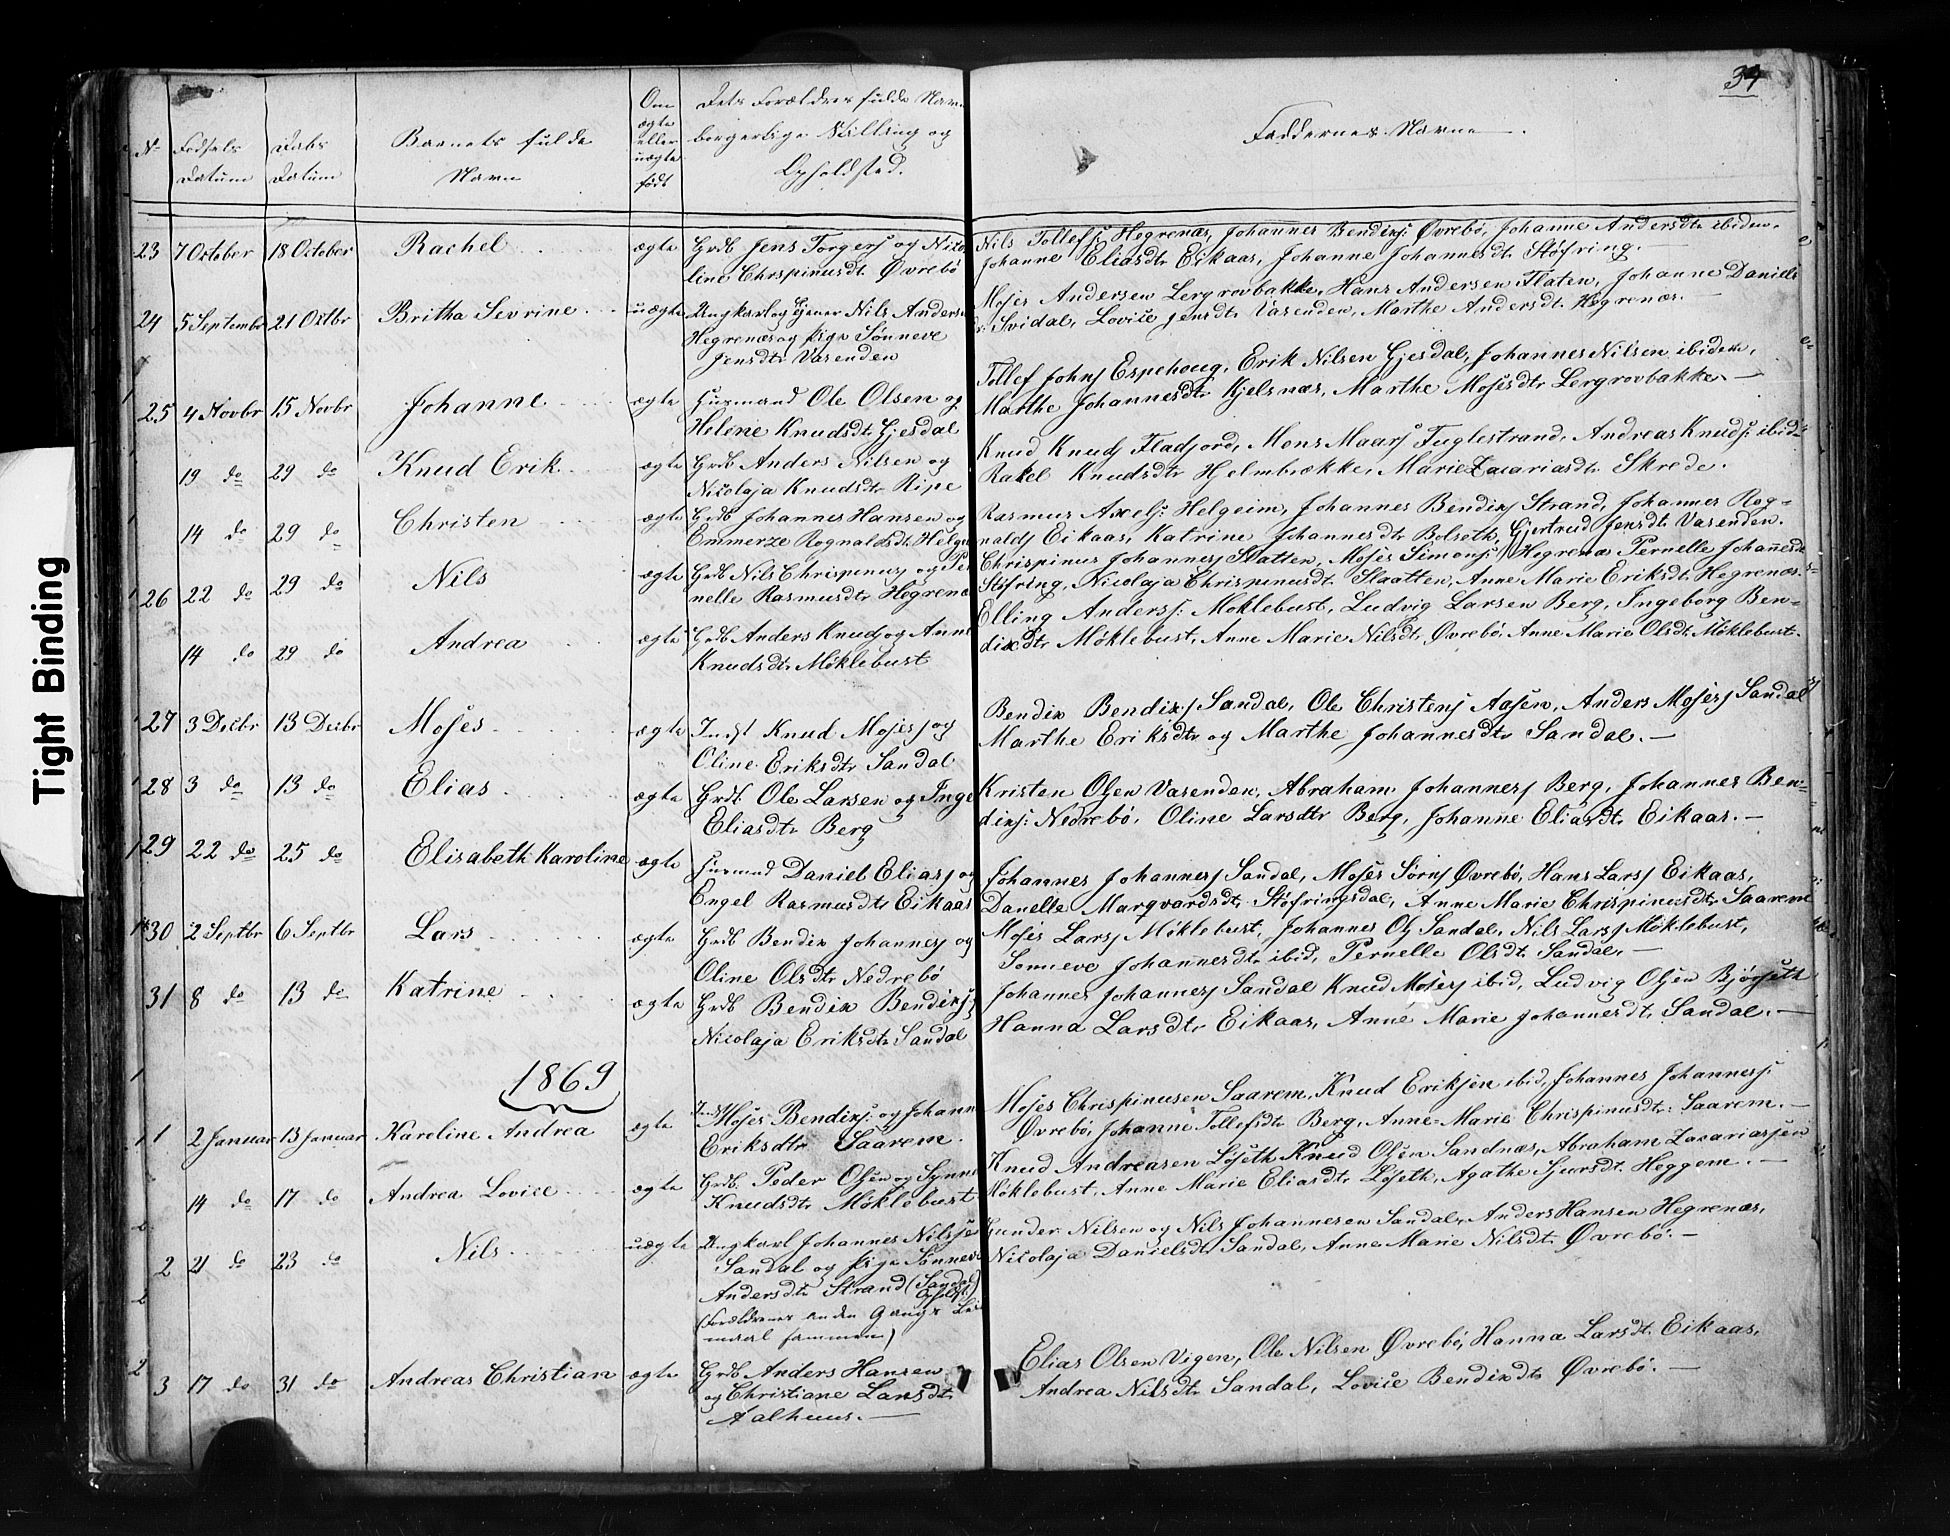 34
No Fødsels Datum Daabs Datum Barnets fulde Navn Om ægte eller uægte født Dets Forældres fulde Navn borgerlige Stilling og Opholdsted. Faddernes Navne
23 7 October 18 October Rachel ægte Grdb Jens Torgersj og Nico-
line Chrspinusdtr Øvrebö
Nils Tollefsj: Hegrenæs, Johannes Bendixsj: Øvrebö, Johanne Andersdtr ibidem.
Johanne Eliasdtr Eikaas, Johanne Johannesdtr Støfring.
24 5 Septembr 21 Oktbr Britha Sevrine uægte Ungkarl og Tjener Nils Andersen
Hegrenæs og Pige Sønneve
Jensdtr Vasenden
Moses Andersen Lergrovbakke, Hans Andersen Flaten, Johanne Daniels
dr Svidal, Lovice Jensdtr Vasenden, Marthe Andersdtr Hegrenæs. —
25 4 Novbr 15 Novbr Johanne ægte Husmand Ole Olsen og
Helene Knudsdtr Gjesdal
Tollef Johnsj Espehoug, Erik Nilsen Gjesdal, Johannes Nilsen ibidem,
Marthe Johannesdtr Kjelsnæs, Marthe Mosesdtr Lergrovbakke. —
19 do 29 do Knud Erik ægte Grdb Anders Nilsen og
Nicolaja Knudsdtr Ripe
Knud Knudsj Fladjord, Mons Maarsj Fuglestrand, Andreas Knudsj: ibid.
Rakel Knudsdtr Hjelmbrække, Marie Zacariasdtr Skrede.
14 do 29 do Christen ægte Grdb Johannes Hansen og
Emmerze Rognaldsdtr Helge
Rasmus Axelsj: Helgeim, Johannes Bendixsj Strand, Johannes Rog-
naldsj Eikaas, Katrine Johannesdtr Bolseth, Gjertrud Jensdtr Vasenden.
26 22 do 29 do Nils ægte Grdb Nils Chrispinusj og Per
nelle Rasmusdtr Hegrenæs
Chrispinus Johannesj Slatten, Moses Simonsj: Hegrenæs Pernelle Johannesdr
Støfring, Nicolaja Chrispinusdtr Slaatten, Anne Marie Eriksdtr Hegrenæs.
14 do 29 do Andrea ægte Grdb Anders Knudsj og Anne
Knudsdtr Møklebust
Elling Andersj: Moklebust, Ludvig Larsen Berg, Ingeborg Ben-
dixdtr Møklebust, Anne Marie Nilsdtr Øvrebö, Anne Marie Olsdtr Møklebust.
27 3 Decbr 13 Decbr Moses ægte Indst Knud Mosesj og
Oline Eriksdtr Sandal
Bendix Bendixsj Sandal, Ole Christensj Aasen, Anders Mosesj Sandal
Marthe Eriksdtr og Marthe Johannesdtr Sandal. —
28 3 do 13 do Elias ægte Grdb. Ole Larsen og Inge
Eliasdtr Berg
Kristen Olsen Vasenden, Abraham Johannesj Berg, Johannes Ben-
dixsj: Nedrebö, Oline Larsdtr Berg, Johanne Eliasdtr Eikaas. —
29 22 do 25 do Elisabeth Karoline ægte Husmd Daniel Eliasj og
Engel Rasmusdtr Eikaas
Johannes Johannesj Sandal, Moses Sörnsj Øvrebö, Hans Larsj Eikaas,
Danelle Marqvardsdtr Støfringsdal, Anne Marie Chrispinusdtr Saarem
30 2 Septbr 6 Septbr Lars ægte Grdb Bendix Johannesj og
Oline Olsdtr Nedrebö
Moses Larsj Møklebust, Johannes Olsj Sandal, Nils Larsj Møklebust,
Sonneve Johannesdtr ibid, Pernelle Olsdtr Sandal. —
31 8 do 13 do Katrine ægte Grdb Bendix Bendixsj
Nicolaja Eriksdtr Sandal
Johannes Johannesj Sandal Knud Mosesj ibid, Ludvig Olsen Bjørseth
Hanna Larsdtr Eikaas, Anne Marie Johannesdtr Sandal. —
1869
1 2 Januar 13 Januar Karoline Andrea ægte Indst Moses Bendixsj: og Johanne
Eriksdtr Saarem.
Moses Chrispinusen Saarem, Knud Eriksen ibid, Johannes Johannesj:
Øvrebö, Johanne Tollefsdtr Berg, Anne-Marie Chrispinusdtr: Saarem. —
14 do 17 do Andrea Lovice ægte Grdb. Peder Olsen og Synne
Knudsdtr Møklebust
Knud Andreasen Löseth Knud Olsen Sandnæs, Abraham Zacariassen
Møklebust, Anne Marie Eliasdtr Løseth, Agathe Sjursdtr Heggem. —
2 21 do 23 do Nils uægte Ungkarl Johannes Nilssen
Sandal og Pige Sønneve
Andersdtr Strand (Sandal Opholdst)
(Forældrenes anden Gangs Lei
maal sammen)
Gunder Nilsen og Nils Johannesen Sandal, Anders Hansen Hegrenæs,
Nicolaja Danielsdtr Sandal, Anne Marie Nilsdtr Øvrebö. —
3 17 do 31 do Andreas Christian ægte Grdb Anders Hansen
og Christiane Larsdtr
Aalhuus. —
Elias Olsen Vigen, Ole Nilsen Øvrebö, Hanna Larsdtr Eikaas,
Andrea Nilsdtr Sandal, Lovise Bendixdtr Øvrebö. —
Tight Binding